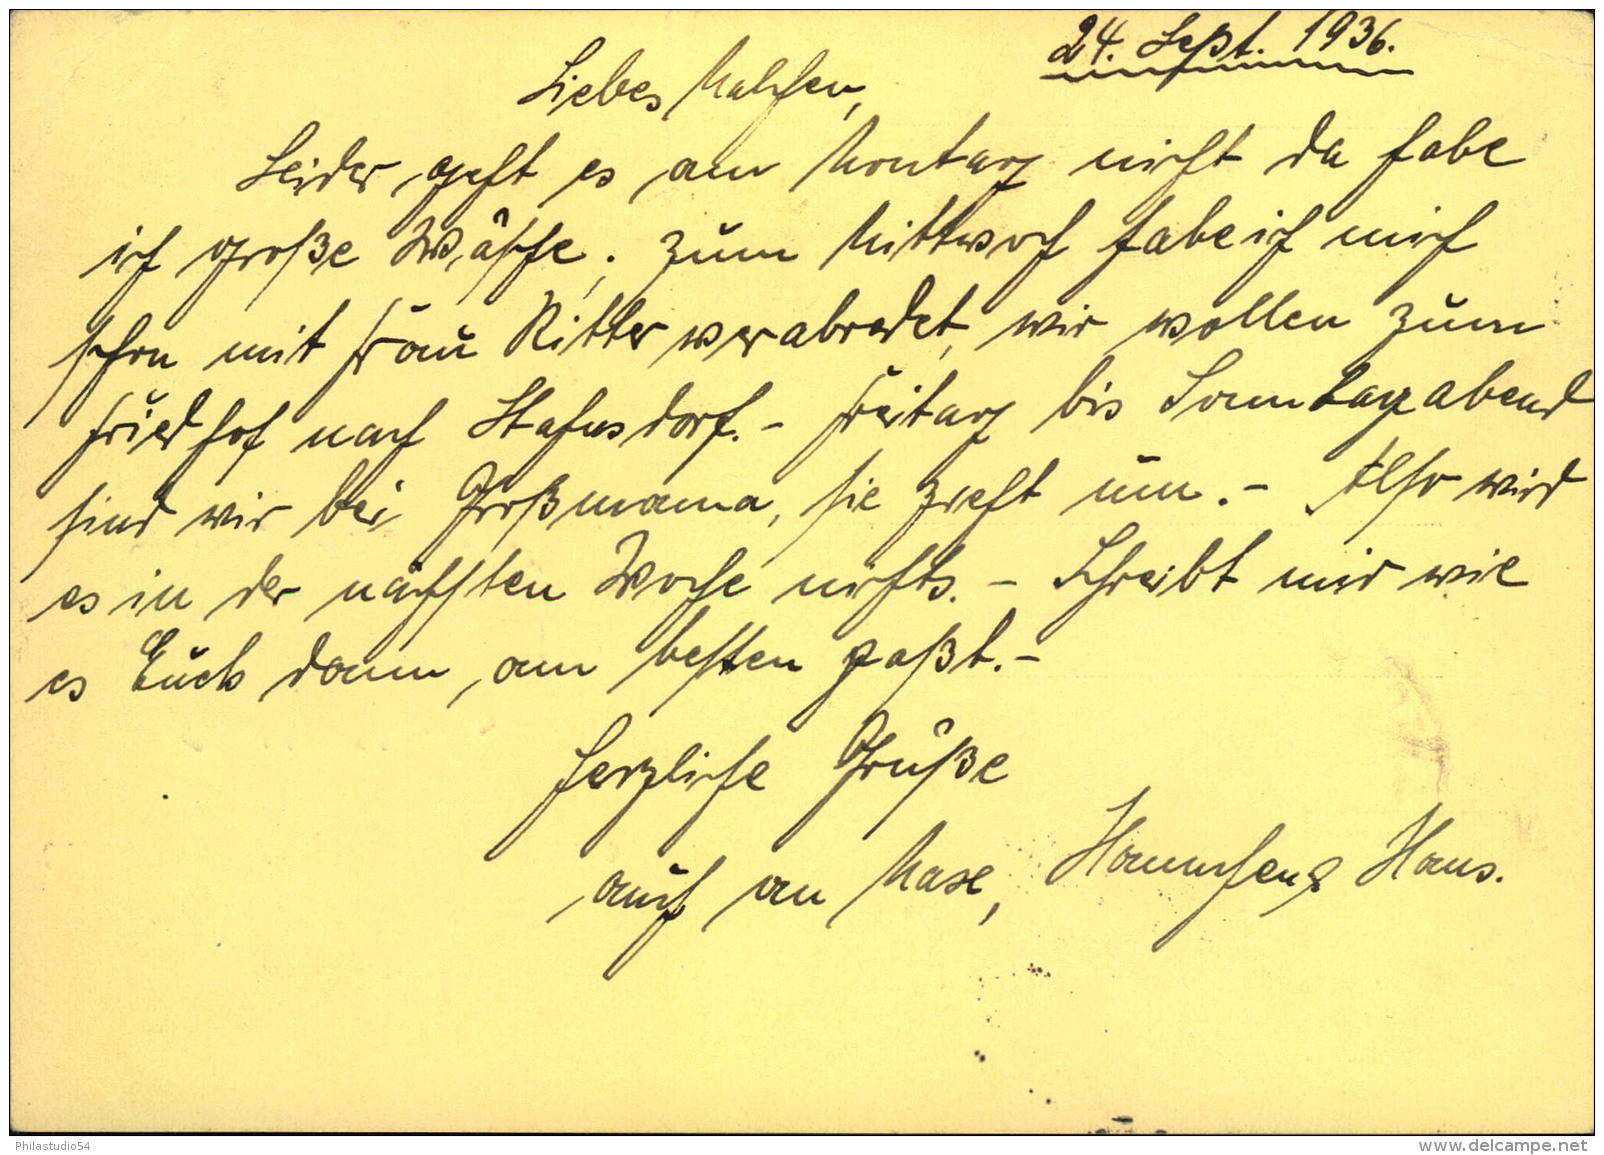 24. Sept. 1936.
Liebes Malchen,
Leider geht es am Montag nicht da habe
ich große Wäsche, zum Mittwoch habe ich mich
schon mit Frau Ritter verabredet, wir wollen zum
Friedhof nach Stahnsdorf. - Freitag bis Sonntagabend
sind wir bei Großmama, sie zieht um. - Also wird
es in der nächsten Woche nichts. - Schreibt mir wie
es Euch dann am besten paßt. -
Herzliche Grüße
auch an Maxe, Hannchen & Hans.
Philastudio54
www.delcampe.net